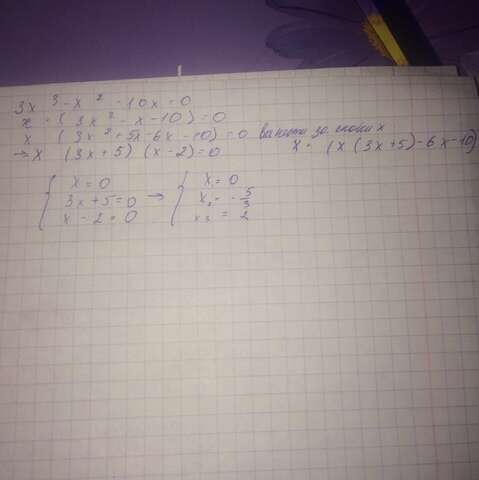 3x³ - x² - 10x = 0
x · (3x² - x - 10) = 0
x (3x² + 5x - 6x - 10) = 0 вынести за скобки x
→ x (3x + 5) (x - 2) = 0 x · (x (3x + 5) - 6x - 10)
{ x = 0 → { x = 0
3x + 5 = 0 x₂ = - 5/3
x - 2 = 0 x₃ = 2